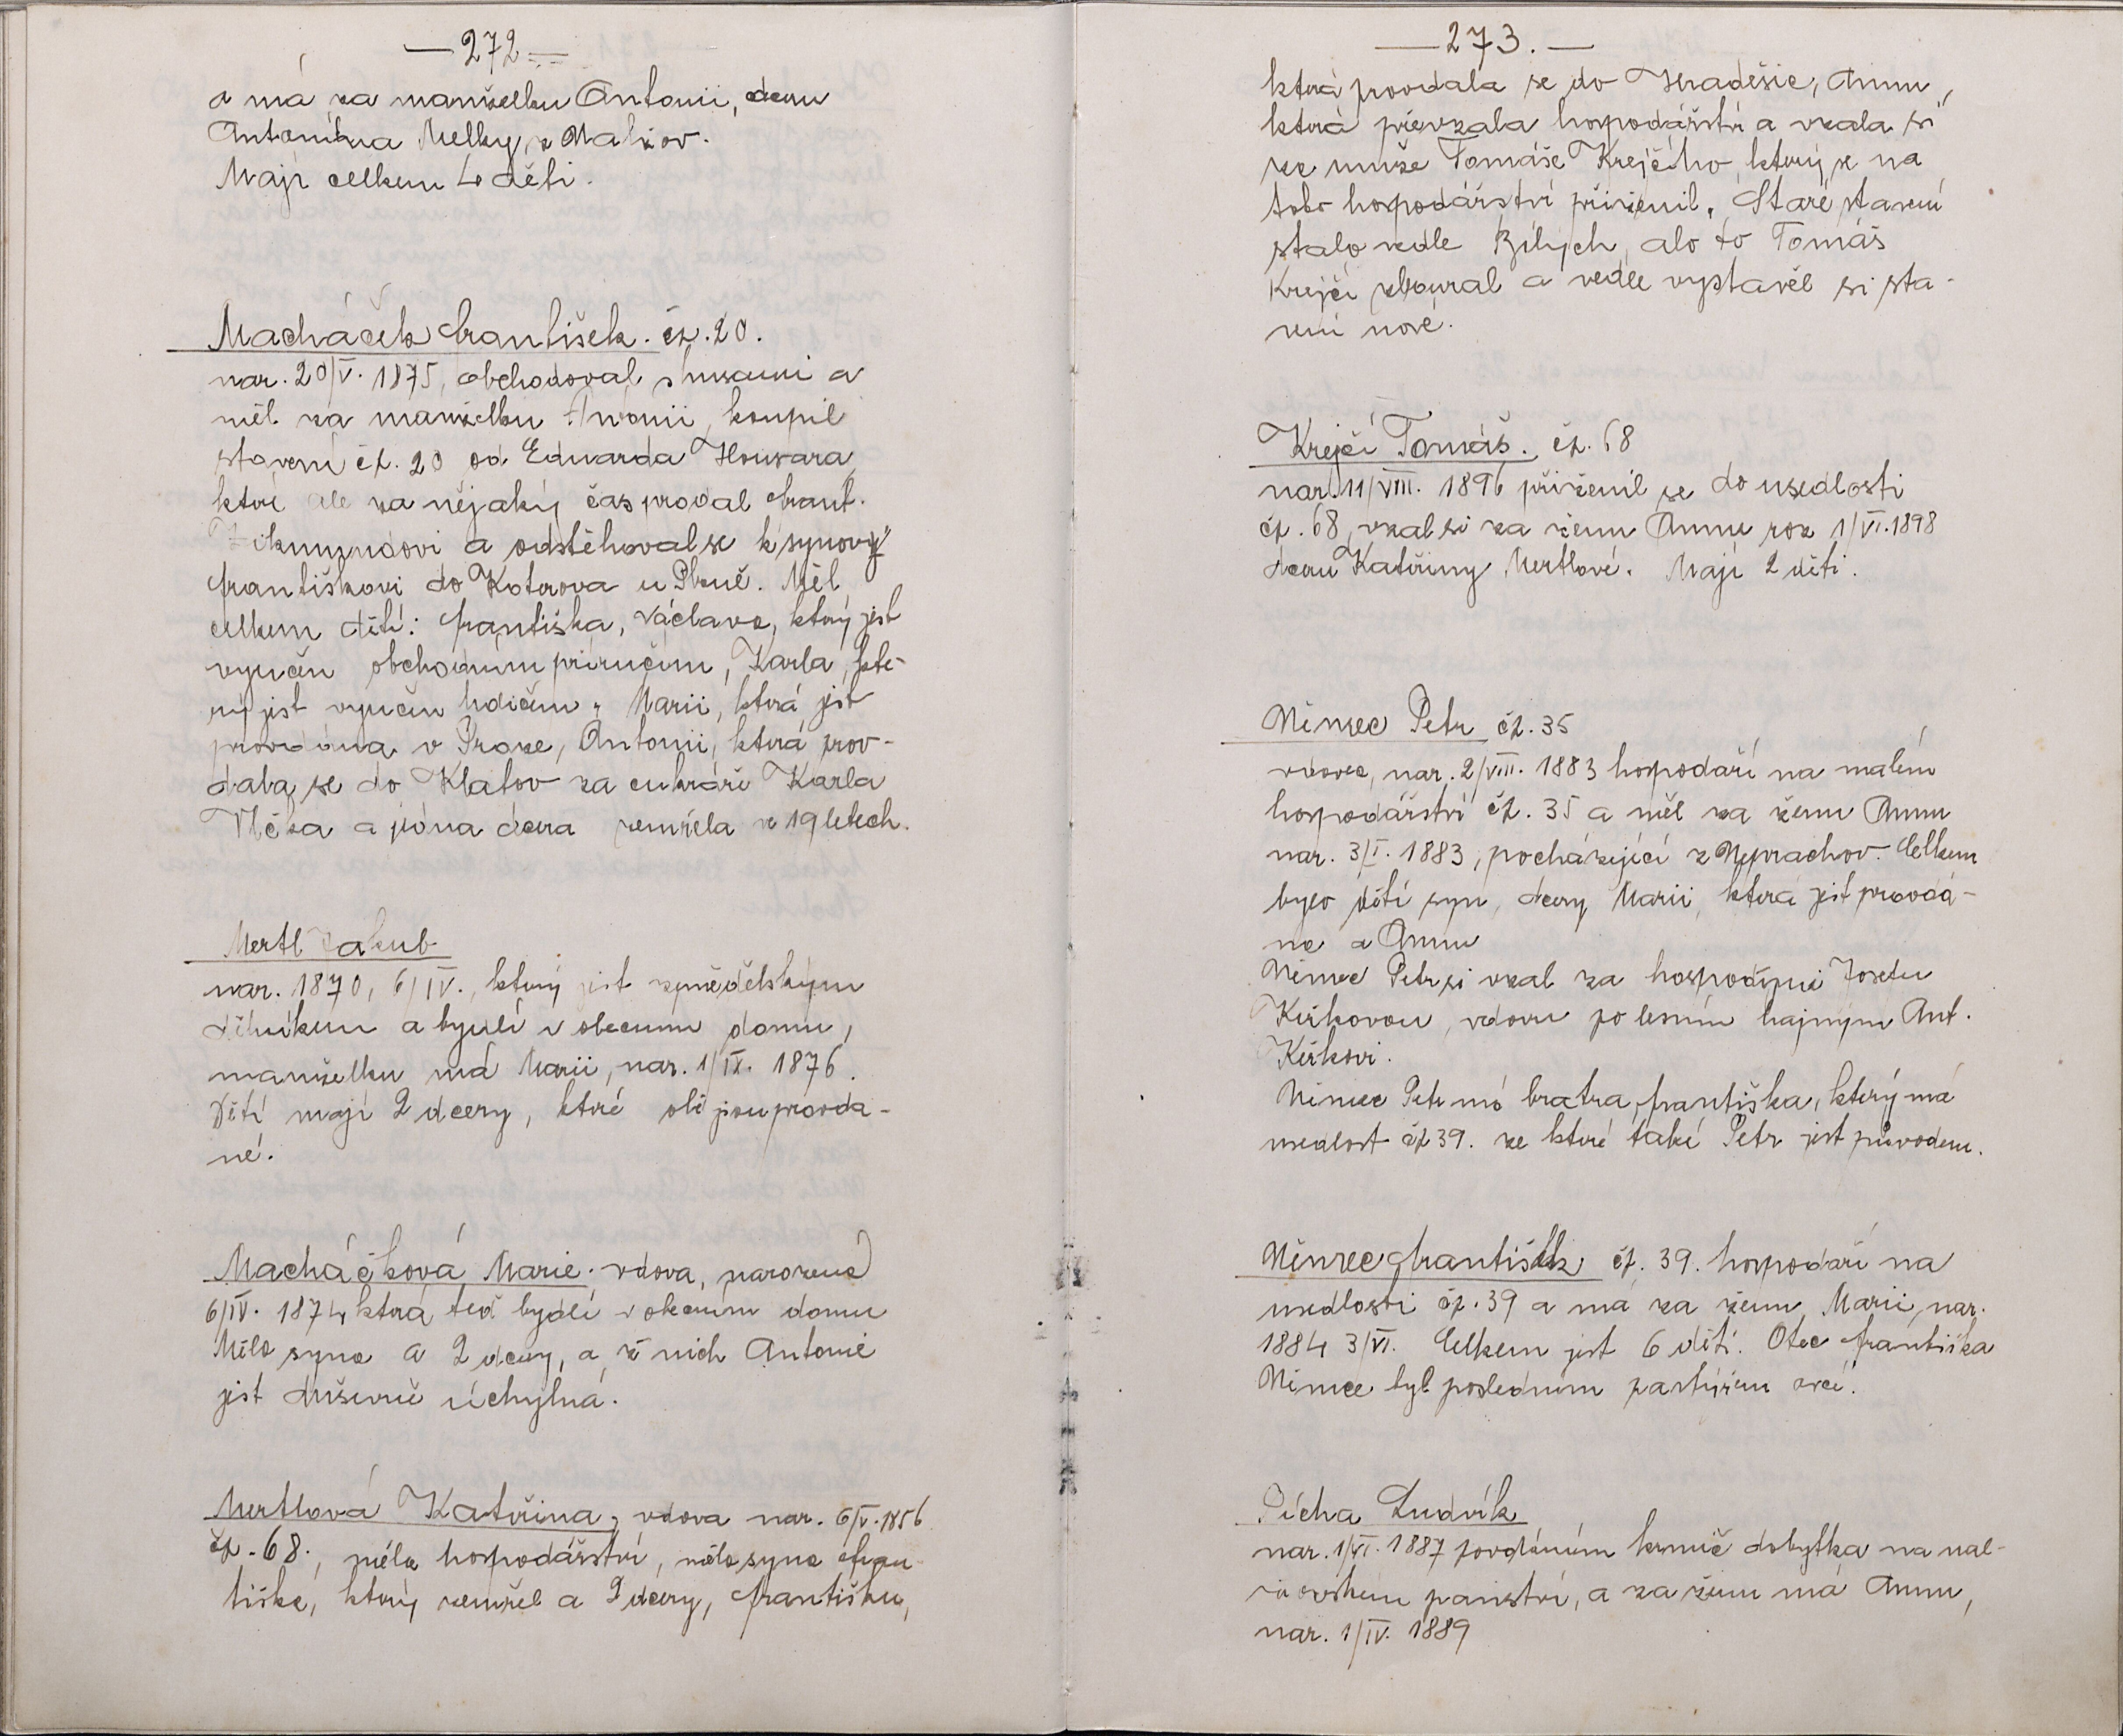 — 272 —
a má za manželku Antonii, dceru
Antonína Melky, z Malzov.
Mají celkem 4 děti.
Macháček František. čp. 20.
nar. 20/V. 1875, obchodoval s husami a
měl za manželku Antonii, koupil
stavení čp. 20 od Eduarda Housara,
které ale za nějaký čas prodal Frant.
Zikmundovi a odstěhoval se k synovi
Františkovi do Koterova u Plzně. Měl
celkem dětí: Františka, Václava, který jest
vyučen obchodním příručím, Karla, kte-
rý jest vyučen holičem, Marii, která jest
provdána v Praze, Antonii, která prov-
dala se do Klatov za cukráře Karla
Vlčka a jedna dcera zemřela v 19 letech.
Mertl Jakub
nar. 1870, 6/IV., který jest zemědělským
dělníkem a bydlí v obecním domu,
manželku má Marii, nar. 1/IX. 1876.
Dětí mají 2 dcery, které obě jsou provda-
né.
Macháčková Marie. vdova, narozená
6/IV. 1874 která teď bydlí v obecním domu
Měla syna a 2 dcery, a z nich Antonie
jest duševně úchylná.
Mertlová Kateřina, vdova nar. 6/V. 1856
čp. 68., měla hospodářství, měla syna Fran-
tiška, který zemřel a 2 dcery, Františku,
— 273. —
která provdala se do Hradešic, Annu,
která převzala hospodářství a vzala si
za muže Tomáše Krejčího, který se na
toto hospodářství přiženil. Staré stavení
stalo vedle Bílých, ale to Tomáš
Krejčí zboural a vedle vystavěl si sta-
vení nové.
Krejčí Tomáš. čp. 68
nar. 11/VIII. 1896 přiženil se do usedlosti
čp. 68, vzal si za ženu Annu roz 1/VI. 1898
dceru Kateřiny Mertlové. Mají 2 děti.
Němec Petr čp. 35
vdovec, nar. 2/VIII. 1883 hospodaří na malém
hospodářství čp. 35 a měl za ženu Annu
nar. 3/I. 1883, pocházející z Neprachov. Celkem
bylo dětí syn, dcery Marii, která jest provdá-
na a Annu
Němec Petr si vzal za hospodyni Josefu
Kůrkovou, vdovu po lesním hajným Ant.
Kůrkovi.
Němec Petr má bratra Františka, který má
usedlost čp 39. ze které také Petr jest původem.
Němec František čp. 39. hospodaří na
usedlosti čp. 39 a má za ženu Marii, nar.
1884 3/VI. Celkem jest 6 dětí. Otec Františka
Němce byl posledním pastýřem ovcí.
Pícha Ludvík
nar. 1/VI. 1887 povoláním krmič dobytka na nal-
žovském panství, a za ženu má Annu,
nar. 1/IV. 1889